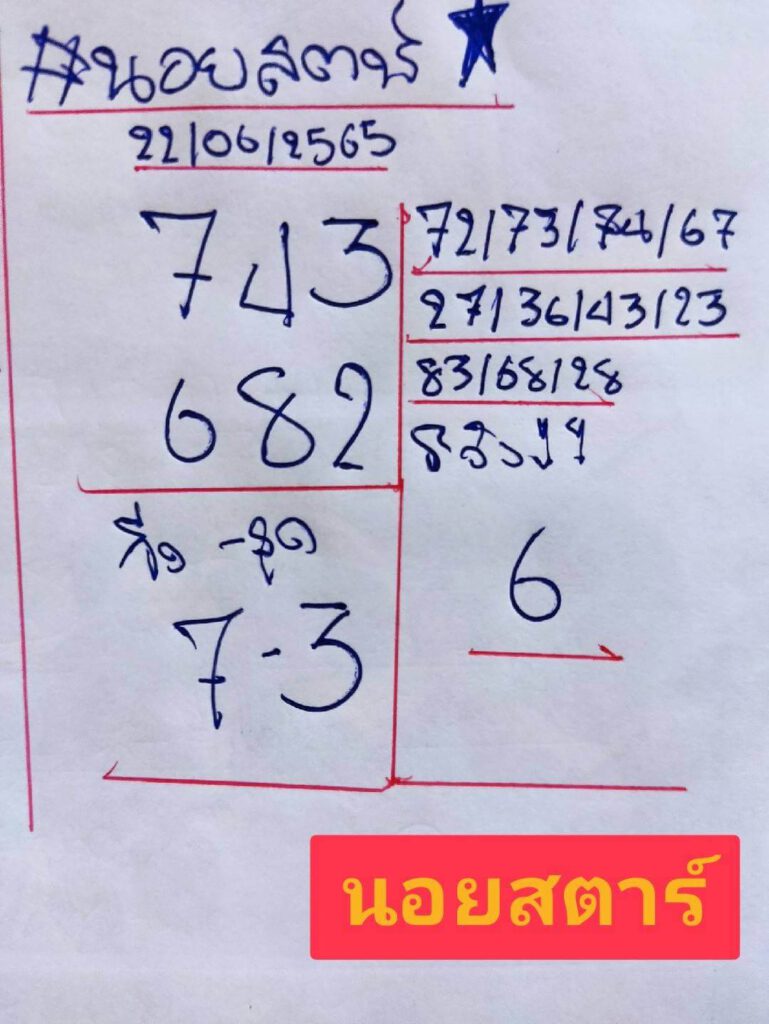 #นอยสตาร์
22/06/2565
743
682
72/73/74/67
27/36/43/23
83/68/28
7-3
6
นอยสตาร์